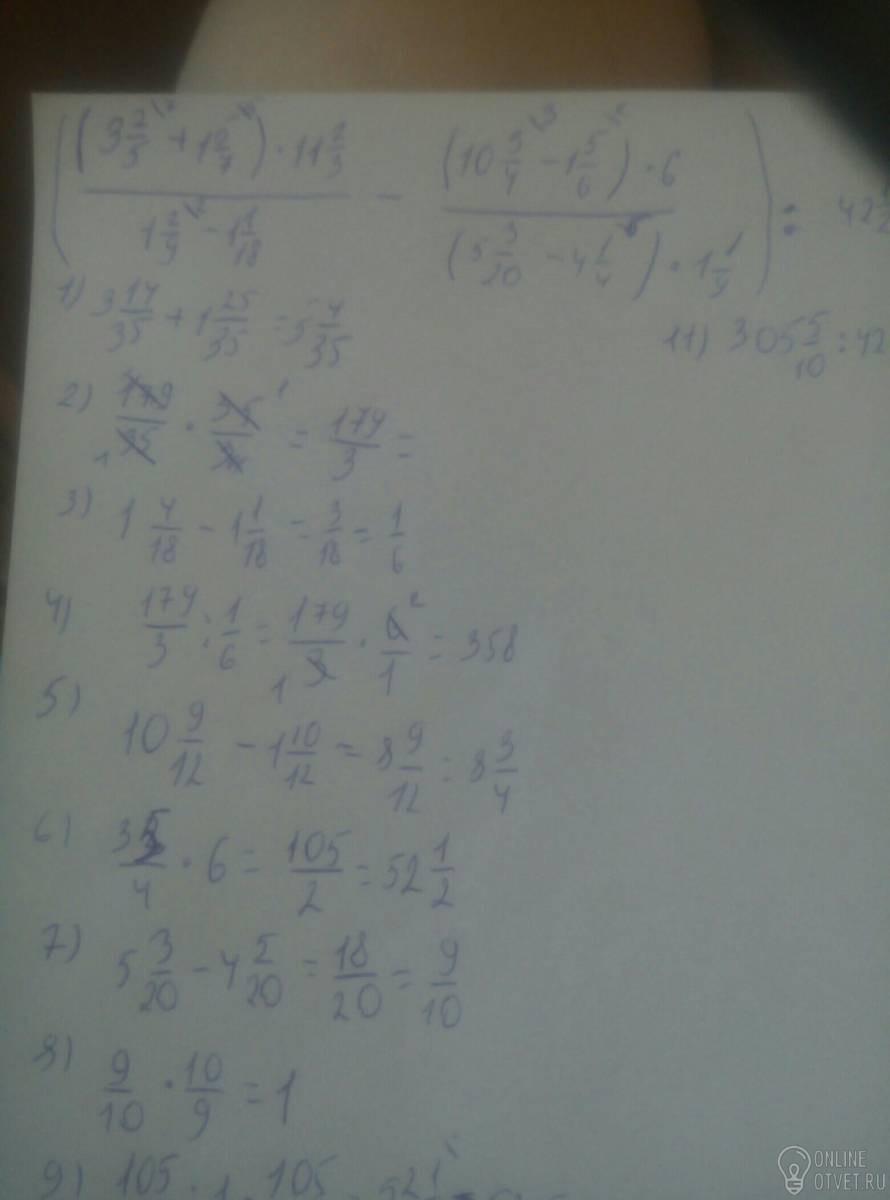 ((3 2/5 + 1 5/7) · 11 2/3)/(1 2/9 - 1 1/18) - ((10 3/4 - 1 5/6) · 6)/((5 3/20 - 4 1/4) · 1 1/9) : 42
1) 3 14/35 + 1 25/35 = 5 4/35
11) 305 5/10 : 42
2) 179/35 · 35/3 = 179/3 =
3) 1 4/18 - 1 1/18 = 3/18 = 1/6
4) 179/3 : 1/6 = 179/3 · 6/1 = 358
5) 10 9/12 - 1 10/12 = 8 9/12 = 8 3/4
6) 35/4 · 6 = 105/2 = 52 1/2
7) 5 3/20 - 4 5/20 = 18/20 = 9/10
8) 9/10 · 10/9 = 1
9) 105 · 1 105 52 1
ONLINE
OTVET.RU